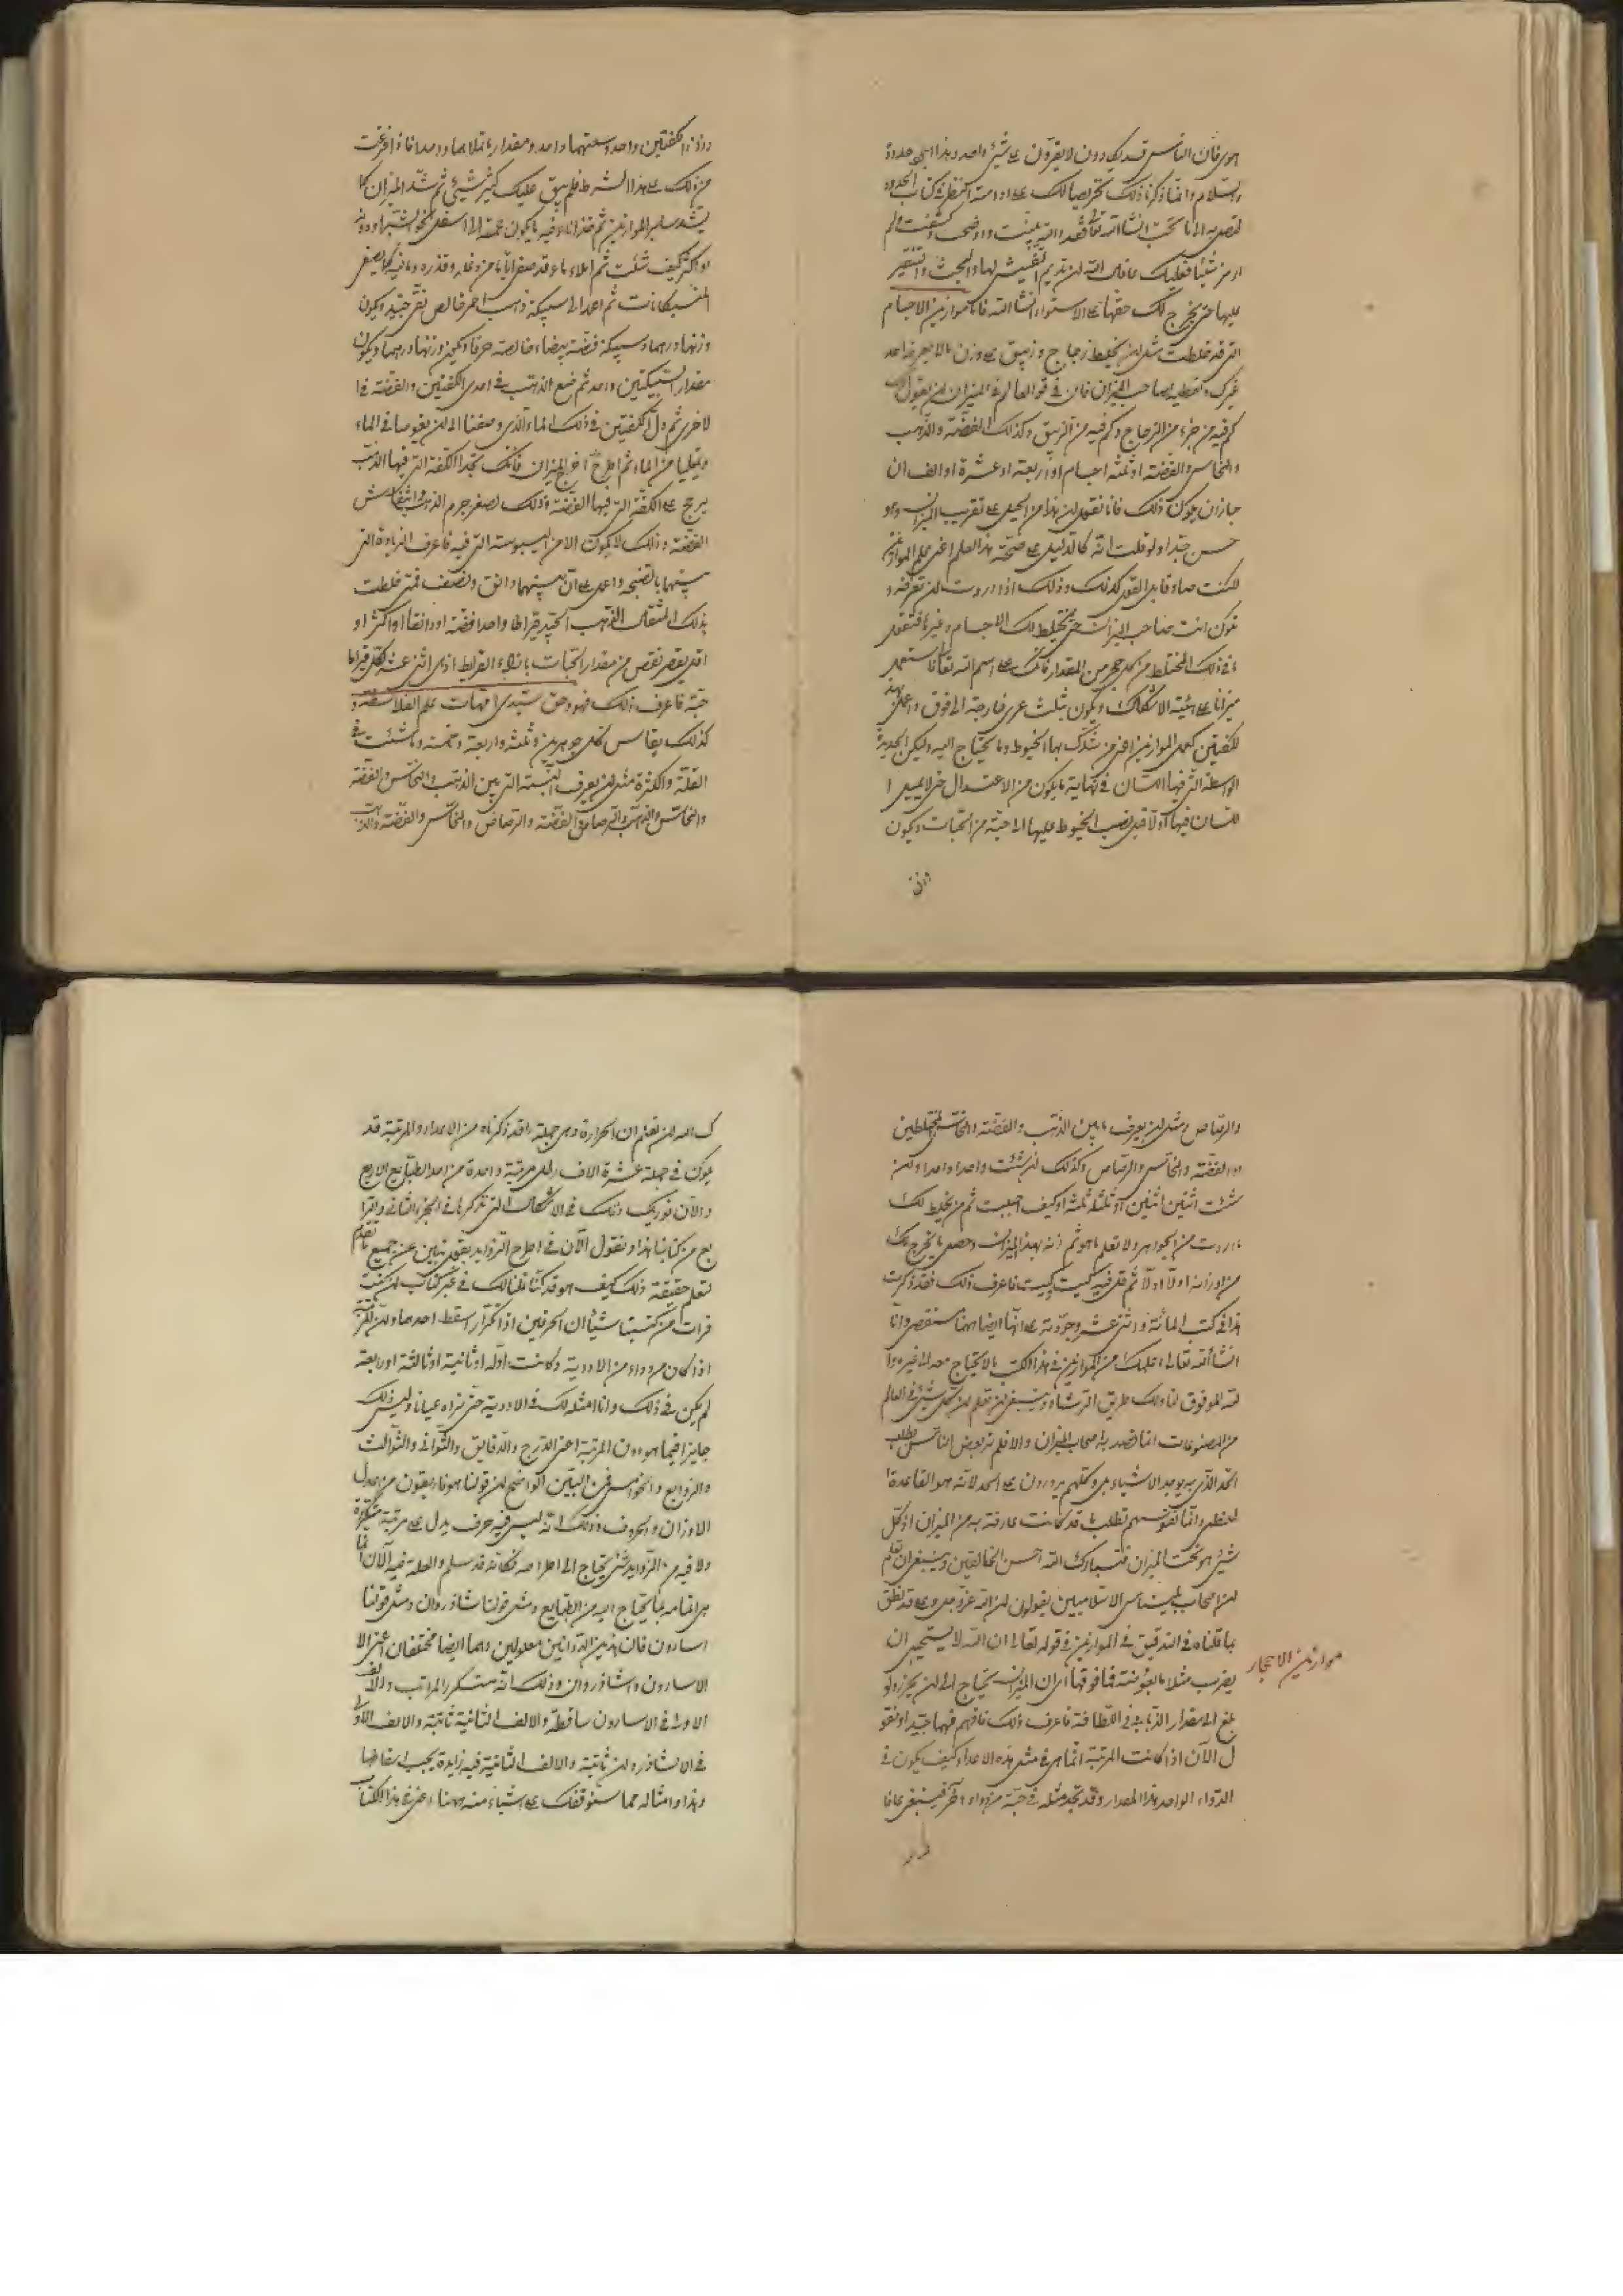 هوى فان الناس قد يكادون لا يقرون على شئ واحد وهذا
والسلام وانما ذكرنا ذلك تحريصا لك على ادامة النظر فى كتاب الحدود
لتصل به الى ما تحب انشا الله تعالى فقد والله بينت واوضحت وكشفت ولم
ارمز شيئا فعليك عافاك الله ان تديم التفتيش لها والبحث والتنقير
عليها حتى يخرج لك حقها على الاستواء انشا الله فاما موازين الاجسام
التى قد خلطت مثل ان يخلط زجاج وزيبق على وزن ما لا يعرفه احد
غيرك وتعطيه صاحب الميزان فان فى قوة العالم فى الميزان ان يقول لك
كم فيه من جزء من الزجاج وكم فيه من الزيبق وكذلك الفضة والذهب
والنحاس والفضة او ثلثة اجسام او اربعة او عشرة او الف ان
جاز ان يكون ذلك فانا نقول ان هذا من الحيل على تقريب الميزان وهو
حسن جدا ولو قلت انه كالدليل على صحة هذا العلم اعنى علم الموازين
لكنت صادقا بل القول كذلك وذلك اذا اردت ان تعرفه و
تكون انت صاحب الميزان حتى يختلط لك الاجسام وغيرها فتقول
ما فى ذلك المختلط من كل حجر من المقدار فانك على اسم الله تعالى تستعمل
ميزانا على هيئة الاشكال ويكون بثلث عرى خارجة الى فوق واعمل
للكفتين كعمل الموازين اعنى من شدك بها الخيوط وما يحتاج اليه وليكن الحديدة
الواسطة التى فيها اللسان فى نهاية ما يكون من الاعتدال حتى لا يميل ا
للسان فيها اولا قبل نصب الخيوط عليها الى حبة من الحبات ويكون
وزن
وزن الكفتين واحد وسعتهما واحد ومقدار ما يملاهما واحدا فاذا فرغت
من ذلك على هذا الشرط فلم يبق عليك كثير شئ ثم شد الميزان كما
يشد ساير الموازين ثم خذ اناء فيه ما يكون عمقه الى اسفل نحو الشبر او دونه
او اكثر كيف شئت ثم املاه ماء قد صفى اياما من دغله وقذره وما فيه كما يصفى
كانت ثم اعمد الى سبيكة ذهب احمر خالص نقى جيد ويكون
وزنها درهما وسبيكة فضة بيضاء خالصة حرفا ويكون وزنها درهما ويكون
مقدار السبيكتين واحد ثم ضع الذهب فى احدى الكفتين والفضة فى ا
لاخرى ثم دل الكفتين فى ذلك الماء الذى وصفنا الى ان يغوصا فى الماء
ويمتليا من الماء ثم اطرح اخرج الميزان فانك تجد الكفة التى فيها الذهب
يرجح على الكفة التى فيها الفضة وذلك لصغر جرم الذهب وانتفاش
الفضة وذلك لا يكون الا من اليبوسة التى فيه فاعرف الزيادة التى
بينهما بالصنجة واعمل على ان بينهما دانق ونصف فمتى خلطت
بذلك المثقال الذهب الجيد قيراطا واحدا فضة او دانقا او اكثر او
اقل نقص من مقدار الحبات باجزاء القراريط اذى اثنى عشر لكل قيراط
حبة فاعرف ذلك فهو حق سيدى امهات علم الفلاسفة و
كذلك يقاس كل جوهرين وثلثة واربعة وخمسة وما شئت فى
القلة والكثرة مثل ان يعرف النسبة التى بين الذهب والنحاس والفضة
والنحاس والذهب والرصاص والفضة والرصاص والنحاس والفضة والذهب
والرصاص ومثل ان يعرف ما بين الذهب والفضة والنحاس المختلطين
او الفضة والنحاس والرصاص وكذلك ان شئت واحدا واحدا وان
شئت اثنين اثنين او ثلثة ثلثة او كيف احببت ثم من يخلط لك
ما اردت من الجواهر ولا تعلم ما هو ثم زنه بهذا الميزان وحصل ما يخرج لك
من اوزانه اولا اولا ثم قل فيه كيت وكيت فاعرف ذلك فقد ذكرت
هذا فى كتب المائة واثنى عشر وجودته على انها ايضا ههنا مستقصى وانا
انشا الله تعالى اعلمك من الموازين فى هذه الكتب ما لا يحتاج معه الى غيره وا
لله الموفق لنا ولك طريق الرشاد وينبغى ان تعلم ان كل شئ فى العالم
من المصنوعات انما قصد به اصحاب الميزان والا فلم نر بعض الناس يطلب
الحد الذى به يوجد الاشياء بل وكلهم يدورون على الحد لانه هو القاعدة ا
لعظمى وانما نفوسهم تطلب ما قد كانت عارفة به من الميزان اذ كل
شئ هو تحت الميزان فتبارك الله احسن الخالقين وينبغى ان تعلم
ان اصحاب القياس الاسلاميين يقولون ان الله عز وجل وعلا قد نطق
بما قلناه فى التدقيق فى الموازين فى قوله تعالى ان الله لا يستحيى ان
يضرب مثلا ما بعوضة فما فوقها اى ان الميزان يحتاج الى ان يحرز ولو
بلغ الى مقدار الذبابة فى اللطافة فاعرف ذلك فافهم فهما جيدا ونقو
ل الآن اذا كانت المرتبة انما هى فى مثل هذه الاعداد وكيف يكون فى
الدواء الواحد هذا المقدار وقد تجد مثله فى حبة من دواء آخر فينبغى عافا
موازين الاحجار
ك الله ان تعلم ان الحرارة وهى جملة ما قد ذكرناه من الاعداد والمرتبة قد
يكون فى جملة عشرة الاف رطل مرتبة واحدة من احد الطبايع الاربع
والآن نوريك ذلك فى الاشكال التى نذكرها فى الجزء الثانى والرا
بع من كتابنا هذا ونقول الآن فى اطراح الزوايد بقول مبين عن جميع ما تقدم
لتعلم حقيقة ذلك كيف هو قد كنا قلنا لك فى غير كتاب ان كنت
قرات من كتبنا شيئا ان الحرفين اذا تكرار اسقط احدهما
اذا كان من دواء من الادوية وكانت اوله او ثانية او ثالثة او رابعة
لم يكن فى ذلك وانا امثله لك فى الادوية حتى تراه عيانا وليس ذلك
جايزا فيما هو دون المرتبة اعنى الدرج والدقايق والثوانى والثوالث
والروابع والخوامس فمن البين الواضح ان قولنا هوفاريقون من اعدل
الاوزان والحروف وذلك انه ليس فيه حرف يدل على مرتبة متكررة
ولا فيه من الزوايد شئ يحتاج الى اطراحه فكانه قد سلم والعلة فيه الآن انما
هى اتمامه بما يحتاج اليه من الطبايع ومثل قولنا شاذروان ومثل قولنا
اسارون فان هذين الدوائين معلولين وهما ايضا مختلفان اعنى الا
الاسارون والشاذروان وذلك انه متكرر المراتب والالف
الاولى فى الاسارون ساقطة والالف الثانية ثابتة والالف الاولى
فى الشاذروان ثابتة والالف الثانية فيه زايدة يجب اسقاطها
وهذا وامثاله مما سنوقفك على اشياء منه ههنا اعنى فى هذا الكتاب